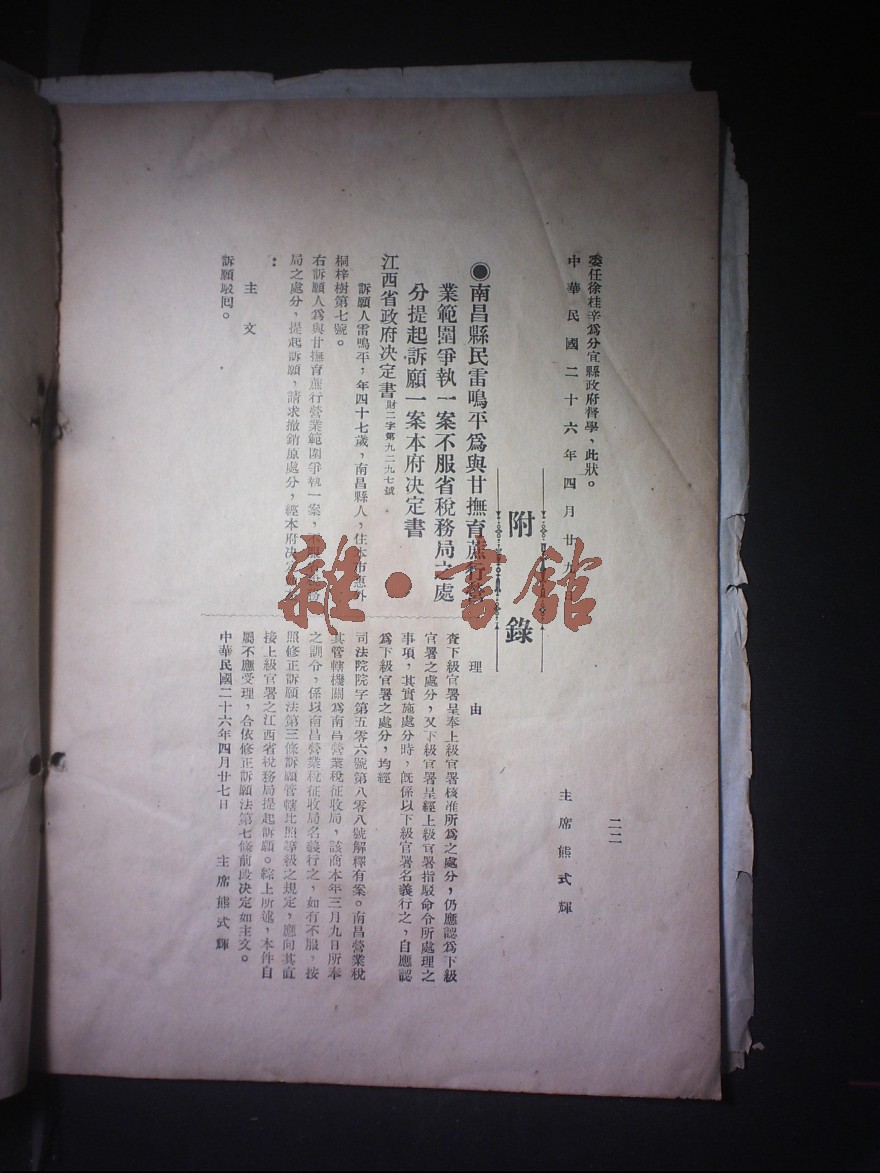 二二
委任徐桂辛爲分宜縣政府督學、此狀。
中華民國二十六年四月廿九
主席熊式輝
附錄
●南昌縣民雷鳴平爲與甘撫育蔴行
業範圍爭執一案不服省稅務局之處
分提起訴願一案本府决定書
江西省政府决定書財二字第九二九七號
訴願人雷鳴平，年四十七歲，南昌縣人，住本市惠外
桐梓樹第七號。
右訴願人爲與甘撫育蔴行營業範圍爭執一案，不服
局之處分，提起訴願，請求撤銷原處分，經本府决定
：
主文
訴願駁回。
理由
査下級官署呈奉上級官署核准所爲之處分，仍應認爲下級
官署之處分，又下級官署呈經上級官署指駁命令所處理之
事項，其實施處分時，旣係以下級官署名義行之，自應認
爲下級官署之處分，均經
司法院院字第五零六號第八零八號解釋有案。南昌營業稅
其管轄機關爲南昌營業稅征收局，該商本年三月九日所奉
之訓令，係以南昌營業稅征收局名義行之，如有不服，按
照修正訴願法第三條訴願管轄比照等級之規定，應向其直
接上級官署之江西省稅務局提起訴願。綜上所述，本件自
屬不應受理，合依修正訴願法第七條前段决定如主文。
中華民國二十六年四月廿七日
主席熊式輝
雜·書館